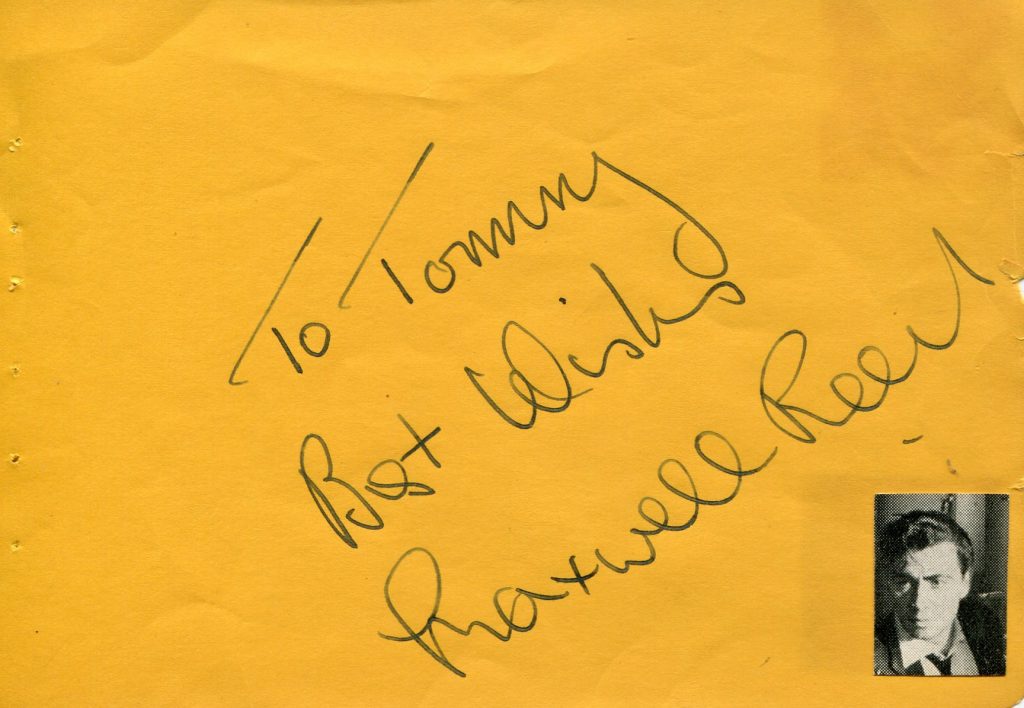 To Tommy
Best Wishes
Maxwell Reed